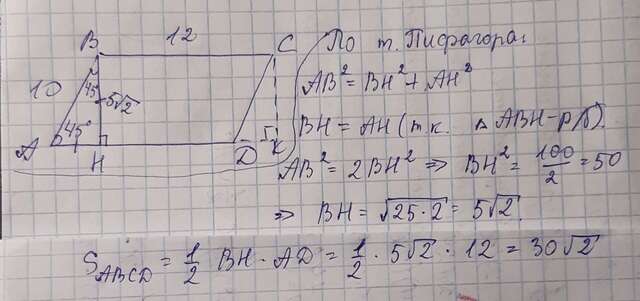 B 12 C
10 45 5√2
A 45° H D K
По т. Пифагора:
AB² = BH² + AH²
BH = AH (т.к. △ ABH - р/б).
AB² = 2BH² ⇒ BH² = 100/2 = 50
⇒ BH = √25·2 = 5√2.
S_ABCD = 1/2 BH · AD = 1/2 · 5√2 · 12 = 30√2